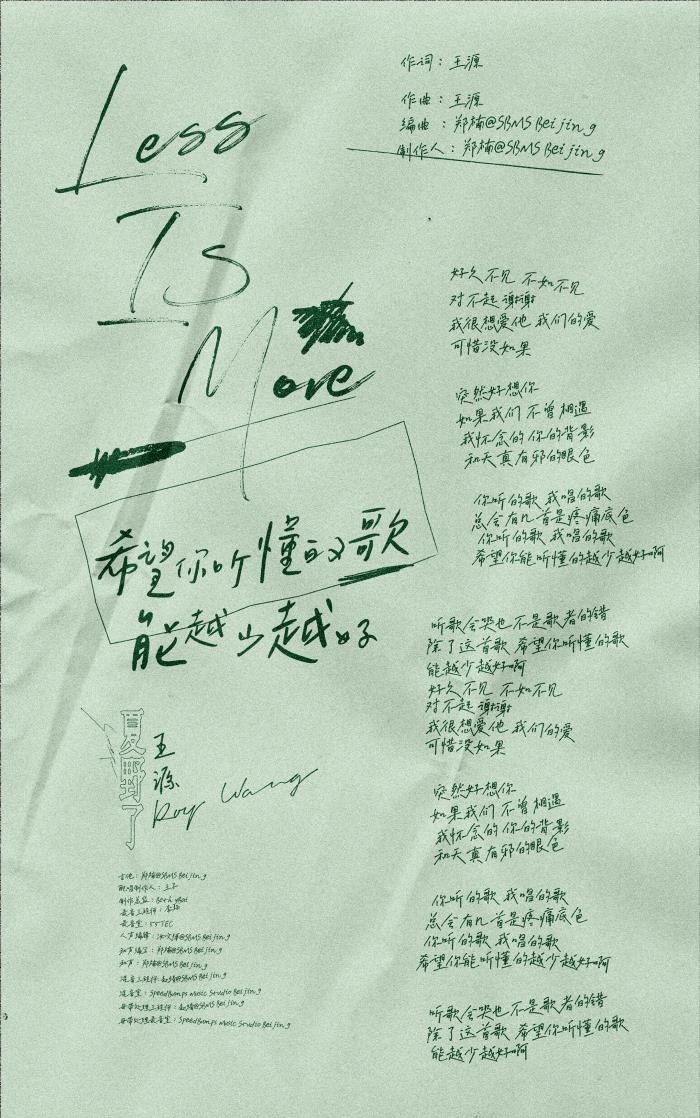 Less
Is
More
希望你听懂的歌
能越少越好
夏野了
王源
Roy Wang
吉他：郑楠@SBMS Beijing
配唱制作人：王子
录音室：55TEC
和声编写：郑楠@SBMS Beijing
和声：郑楠@SBMS Beijing
混音室：SpeedBumps Music Studio Beijing
母带处理录音室：SpeedBumps Music Studio Beijing
作词：王源
作曲：王源
编曲：郑楠@SBMS Beijing
制作人：郑楠@SBMS Beijing
好久不见 不如不见
对不起 谢谢
我很想爱他 我们的爱
可惜没如果
突然好想你
如果我们 不曾相遇
我怀念的 你的背影
和天真有邪的眼色
你听的歌 我唱的歌
总会有几首是疼痛底色
你听的歌 我唱的歌
希望你能听懂的越少越好啊
听歌会哭也不是歌者的错
除了这首歌 希望你听懂的歌
能越少越好啊
好久不见 不如不见
对不起 谢谢
我很想爱他 我们的爱
可惜没如果
突然好想你
如果我们 不曾相遇
我怀念的 你的背影
和天真有邪的眼色
你听的歌 我唱的歌
总会有几首是疼痛底色
你听的歌 我唱的歌
希望你能听懂的越少越好啊
听歌会哭也不是歌者的错
除了这首歌 希望你听懂的歌
能越少越好啊